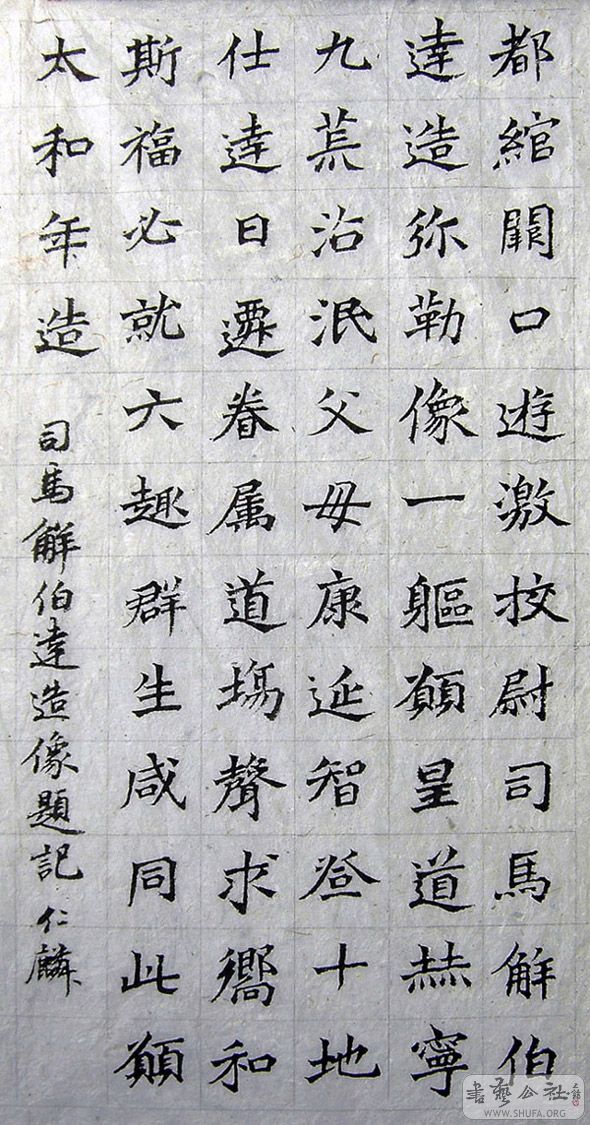 都綰闕口遊激挍尉司馬解伯
達造弥勒像一軀願皇道赫寧
九荒沾泯父母康延智登十地
仕達日遷眷属道塲聲求嚮和
斯福必就六趣群生咸同此願
太和年造
司馬解伯達造像題記 仁麟
書藝公社
WWW.SHUFA.ORG